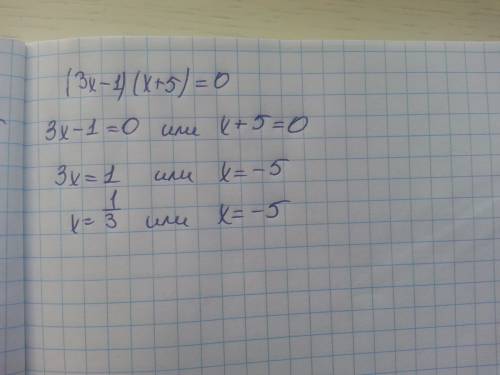 (3x-1)(x+5)=0
3x-1=0 или x+5=0
3x=1 или x=-5
x=1/3 или x=-5